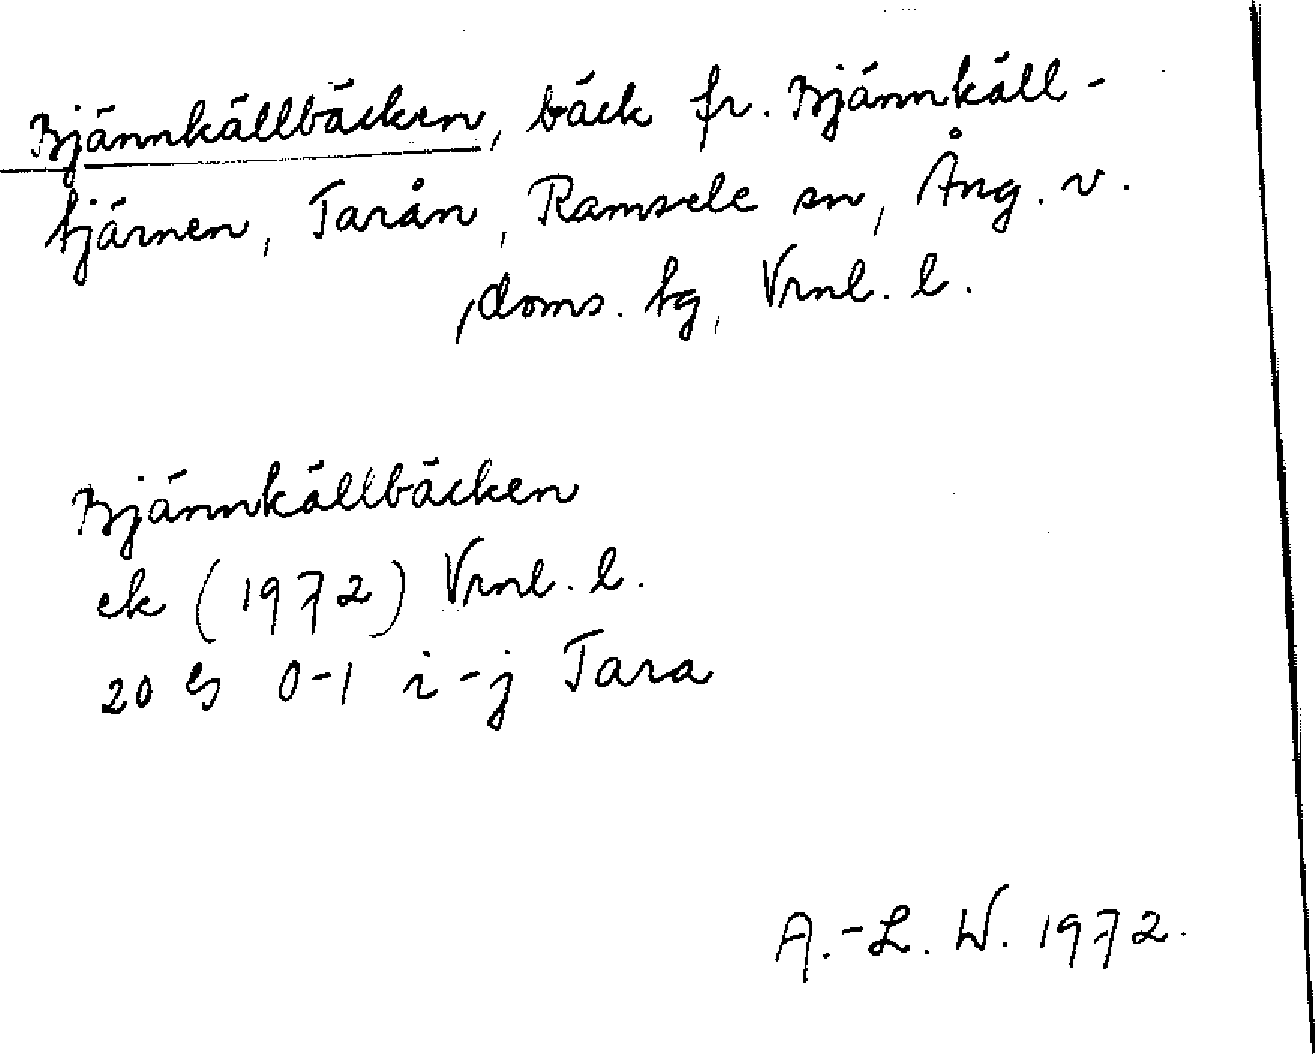 Bjännkällbäcken, bäck fr. Bjännkäll-
tjärnen, Tarån, Ramsele sn, Ång. v.
doms. tg, Vrnl. l.
Bjännkällbäcken
ek (1972) Vrnl. l.
20 G 0-1 i-j Tara
A.-L. W. 1972.